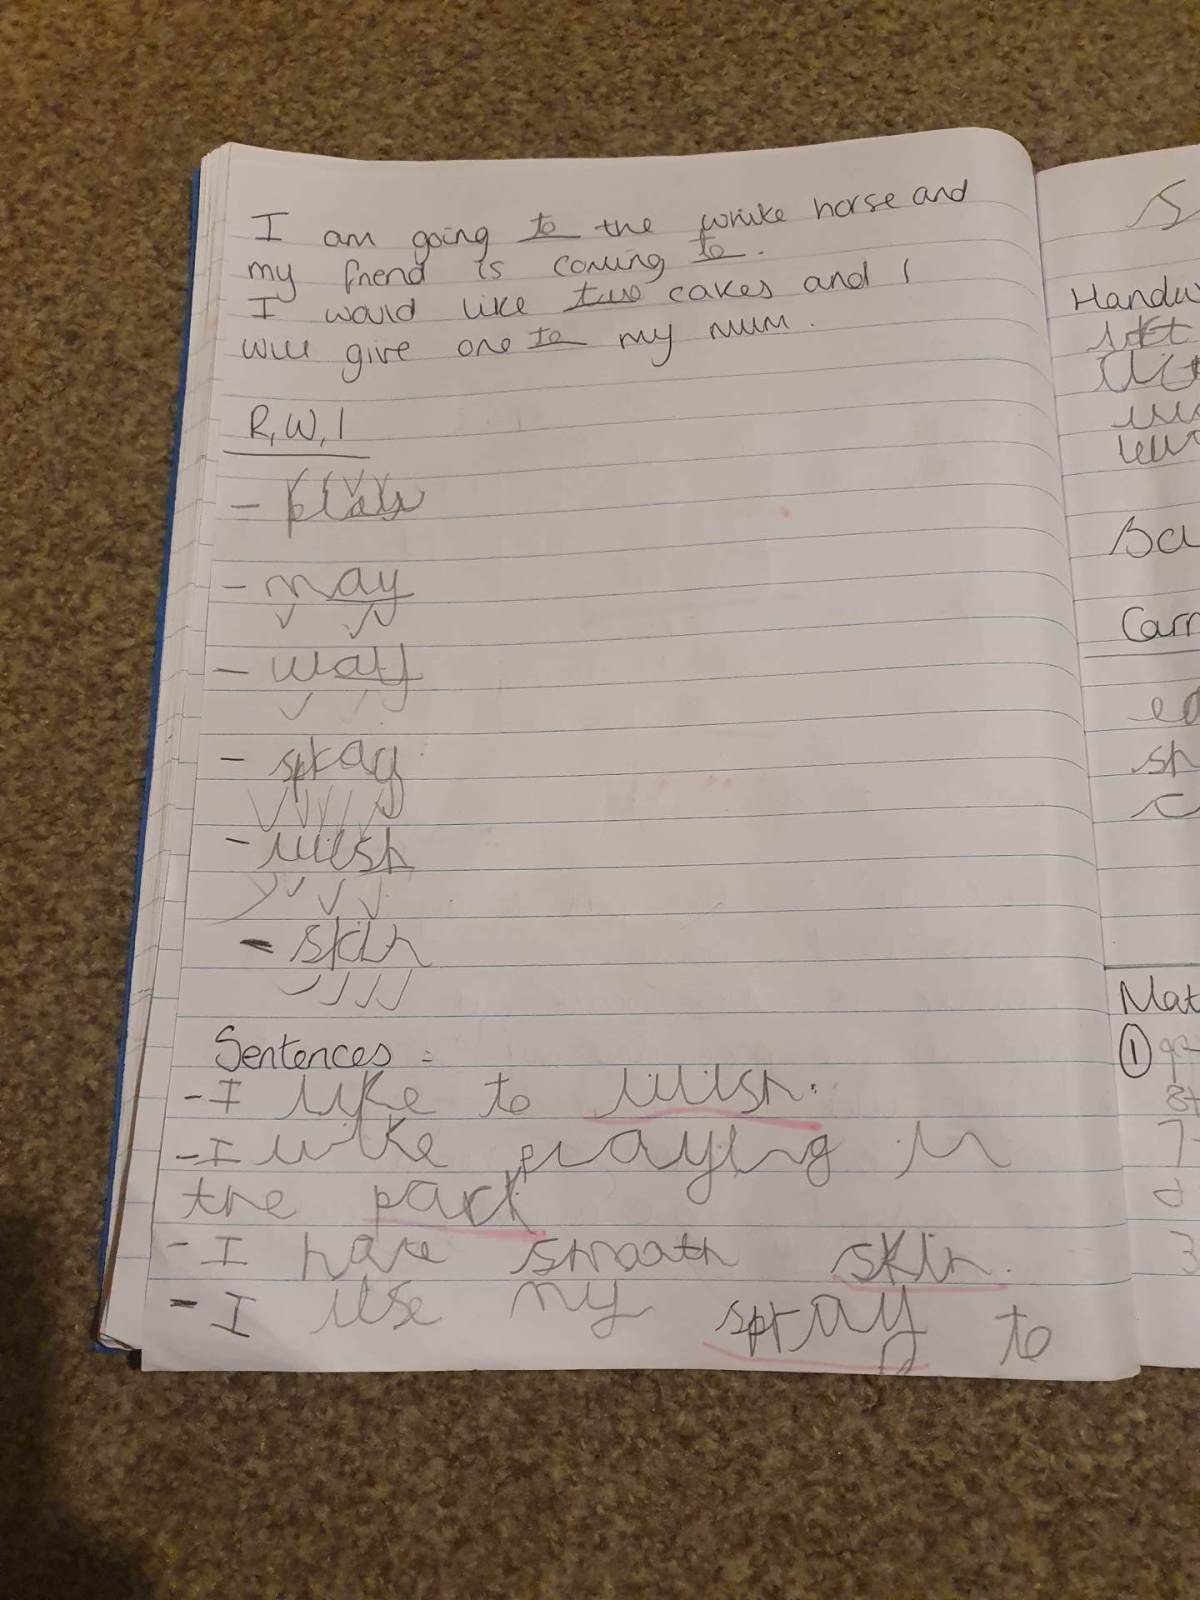 I am going to the white horse and
my friend is coming to.
I would like two cakes and I
will give one to my mum.
R,W,I
- play
- may
- way
- spray
- wish
- skin
Sentences:
- I like to wish.
- I like playing in
the park
- I have smooth skin.
- I use my spray to
Handw
Carr
sh
Mat
①